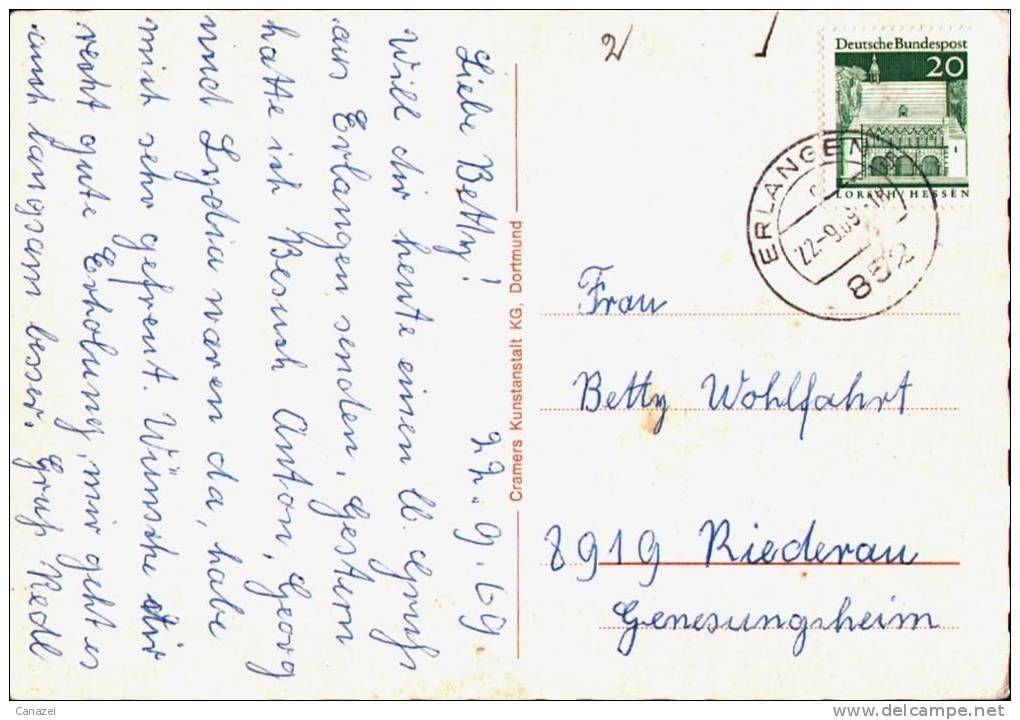 Liebe Betty! 22.9.69
Will dir heute einen lb. Gruß
aus Erlangen senden, gestern
hatte ich Besuch Anton, Georg
und Lydia waren da, habe
mich sehr gefreut. Wünsche dir
recht gute Erholung, mir geht es
auch langsam besser. Gruß Redl
Cramers Kunstanstalt KG, Dortmund
2
Deutsche Bundespost
20
LORSCH/HESSEN
ERLANGEN
22.-9.69.-18
852
Frau
Betty Wohlfahrt
8919 Riederau
Genesungsheim
Canazei
http://www.delcampe.net